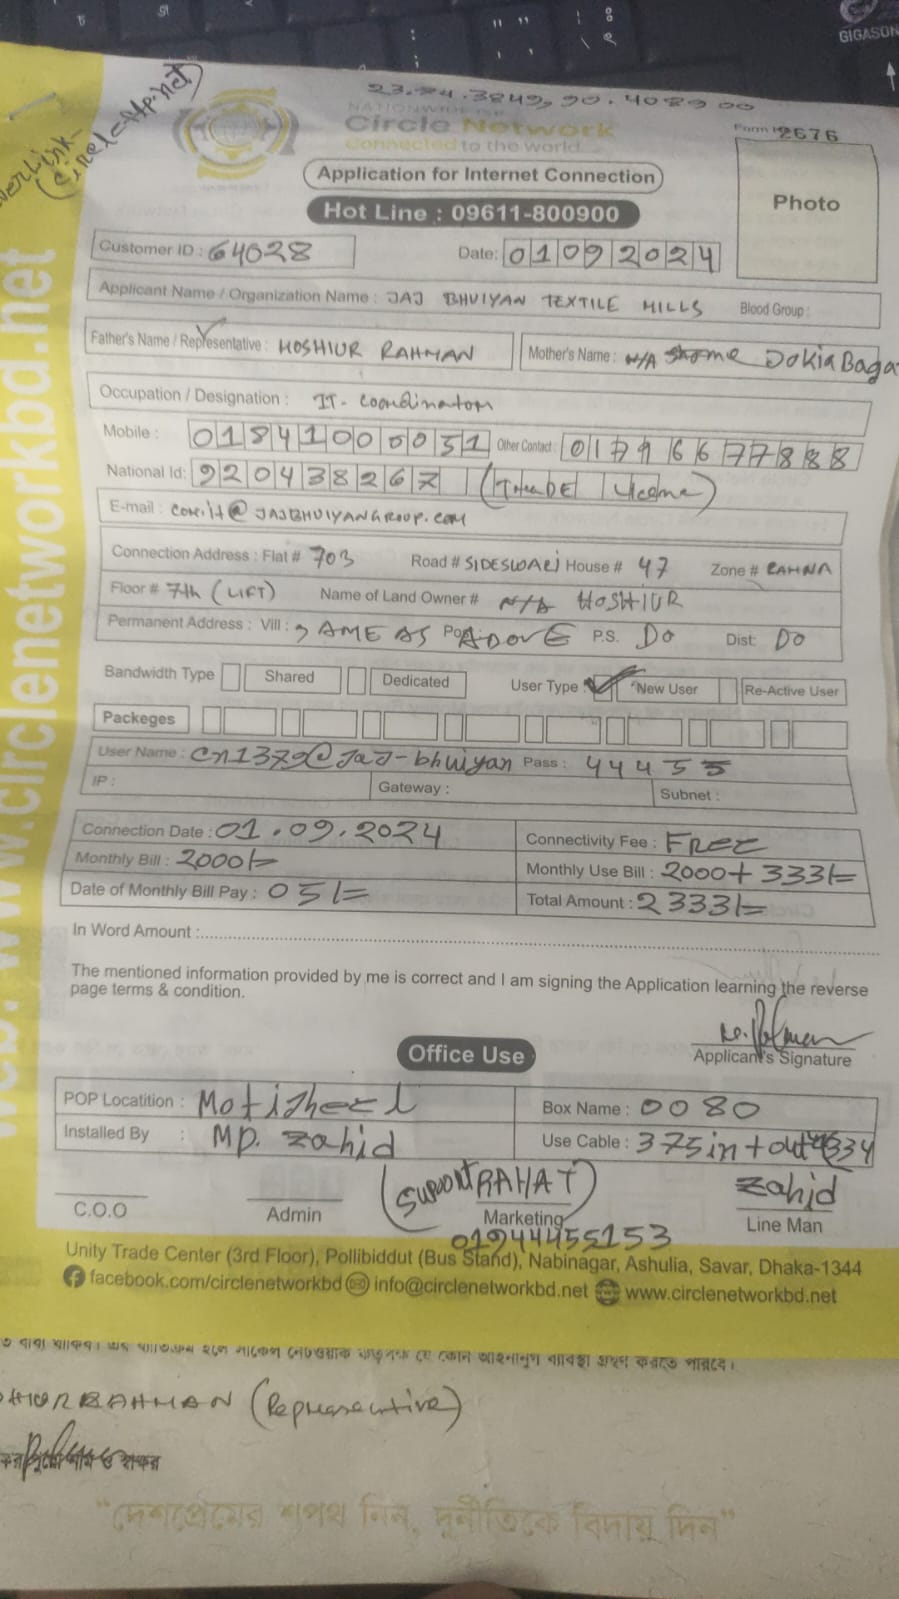 23. 3849, 90. 408900
(circle-hp.net)
NATIONWIDE ISP
Circle Network
Connected to the world
Form # 2676
Photo
Application for Internet Connection
Hot Line : 09611-800900
Customer ID : 64028 Date: 01092024
Applicant Name / Organization Name : JAJ BHUIYAN TEXTILE MILLS Blood Group :
Father's Name / Representative : MOSHIUR RAHMAN Mother's Name : N/A Dokia Baga
Occupation / Designation : IT- Coordinator
Mobile : 01841000051 Other Contact : 01796677888
National Id: 920438267
E-mail : com.it@JAJBHUIYANGROUP.COM
Connection Address : Flat # 703 Road # SIDESWARI House # 47 Zone # RAMNA
Floor # 7th (LIFT) Name of Land Owner # N/A MOSHIUR
Permanent Address : Vill : SAME AS Post ABOVE P.S. Do Dist: Do
Bandwidth Type Shared Dedicated User Type : New User Re-Active User
Packeges
User Name : cn1379@Jaj-bhuiyan Pass : 44455
IP : Gateway : Subnet :
Connection Date : 01.09.2024 Connectivity Fee : FREE
Monthly Bill : 2000/= Monthly Use Bill : 2000+ 333/=
Date of Monthly Bill Pay : 05/= Total Amount : 2333/=
In Word Amount :
The mentioned information provided by me is correct and I am signing the Application learning the reverse
page terms & condition.
Applicant's Signature
Office Use
POP Locatition : Motijheel Box Name : 0080
Installed By : MD. Zahid Use Cable : 375 in + out 334
(Support RAHAT) Zahid
C.O.O Admin Marketing Line Man
01944455153
Unity Trade Center (3rd Floor), Pollibiddut (Bus Stand), Nabinagar, Ashulia, Savar, Dhaka-1344
facebook.com/circlenetworkbd info@circlenetworkbd.net www.circlenetworkbd.net
web: www.circlenetworkbd.net
সার্কেল নেটওয়ার্ক কর্তৃপক্ষ যে কোন আইনানুগ ব্যাবস্থা গ্রহণ করতে পারবে।
RAHMAN (Representative)
"দেশপ্রেমের শপথ নিন, দুর্নীতিকে বিদায় দিন"